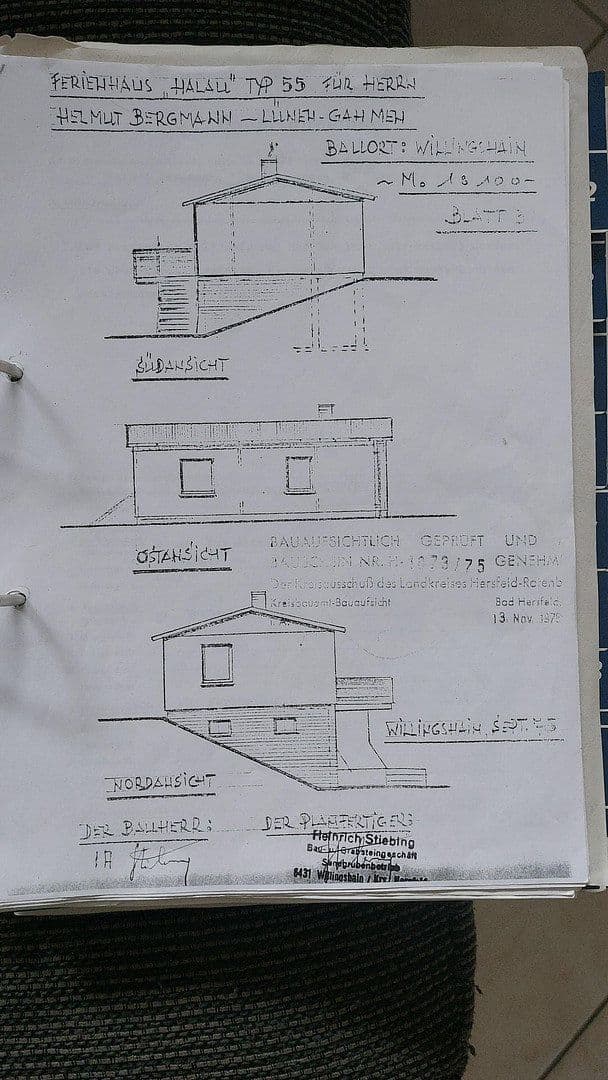 FERIENHAUS „HALALI" TYP 55 FÜR HERRN
HELMUT BERGMANN – LÜNEN-GAHMEN
BAUORT: WILLINGSHAIN
~ M. 1:100-
BLATT 3
SÜDANSICHT
OSTANSICHT
BAUAUFSICHTLICH GEPRÜFT UND
NR. 1973/75 GENEHM
Der Kreisausschuß des Landkreises Hersfeld-Rotenb
Kreisbauamt-Bauaufsicht
Bad Hersfeld,
13. Nov. 1975
WILLINGSHAIN, SEPT. 75
NORDANSICHT
DER BAUHERR:
DER PLANFERTIGER:
Heinrich Stiebing
Bau- u. Grabsteingeschäft
Sandgrubenbetrieb
6431 Willingshain / Krs.